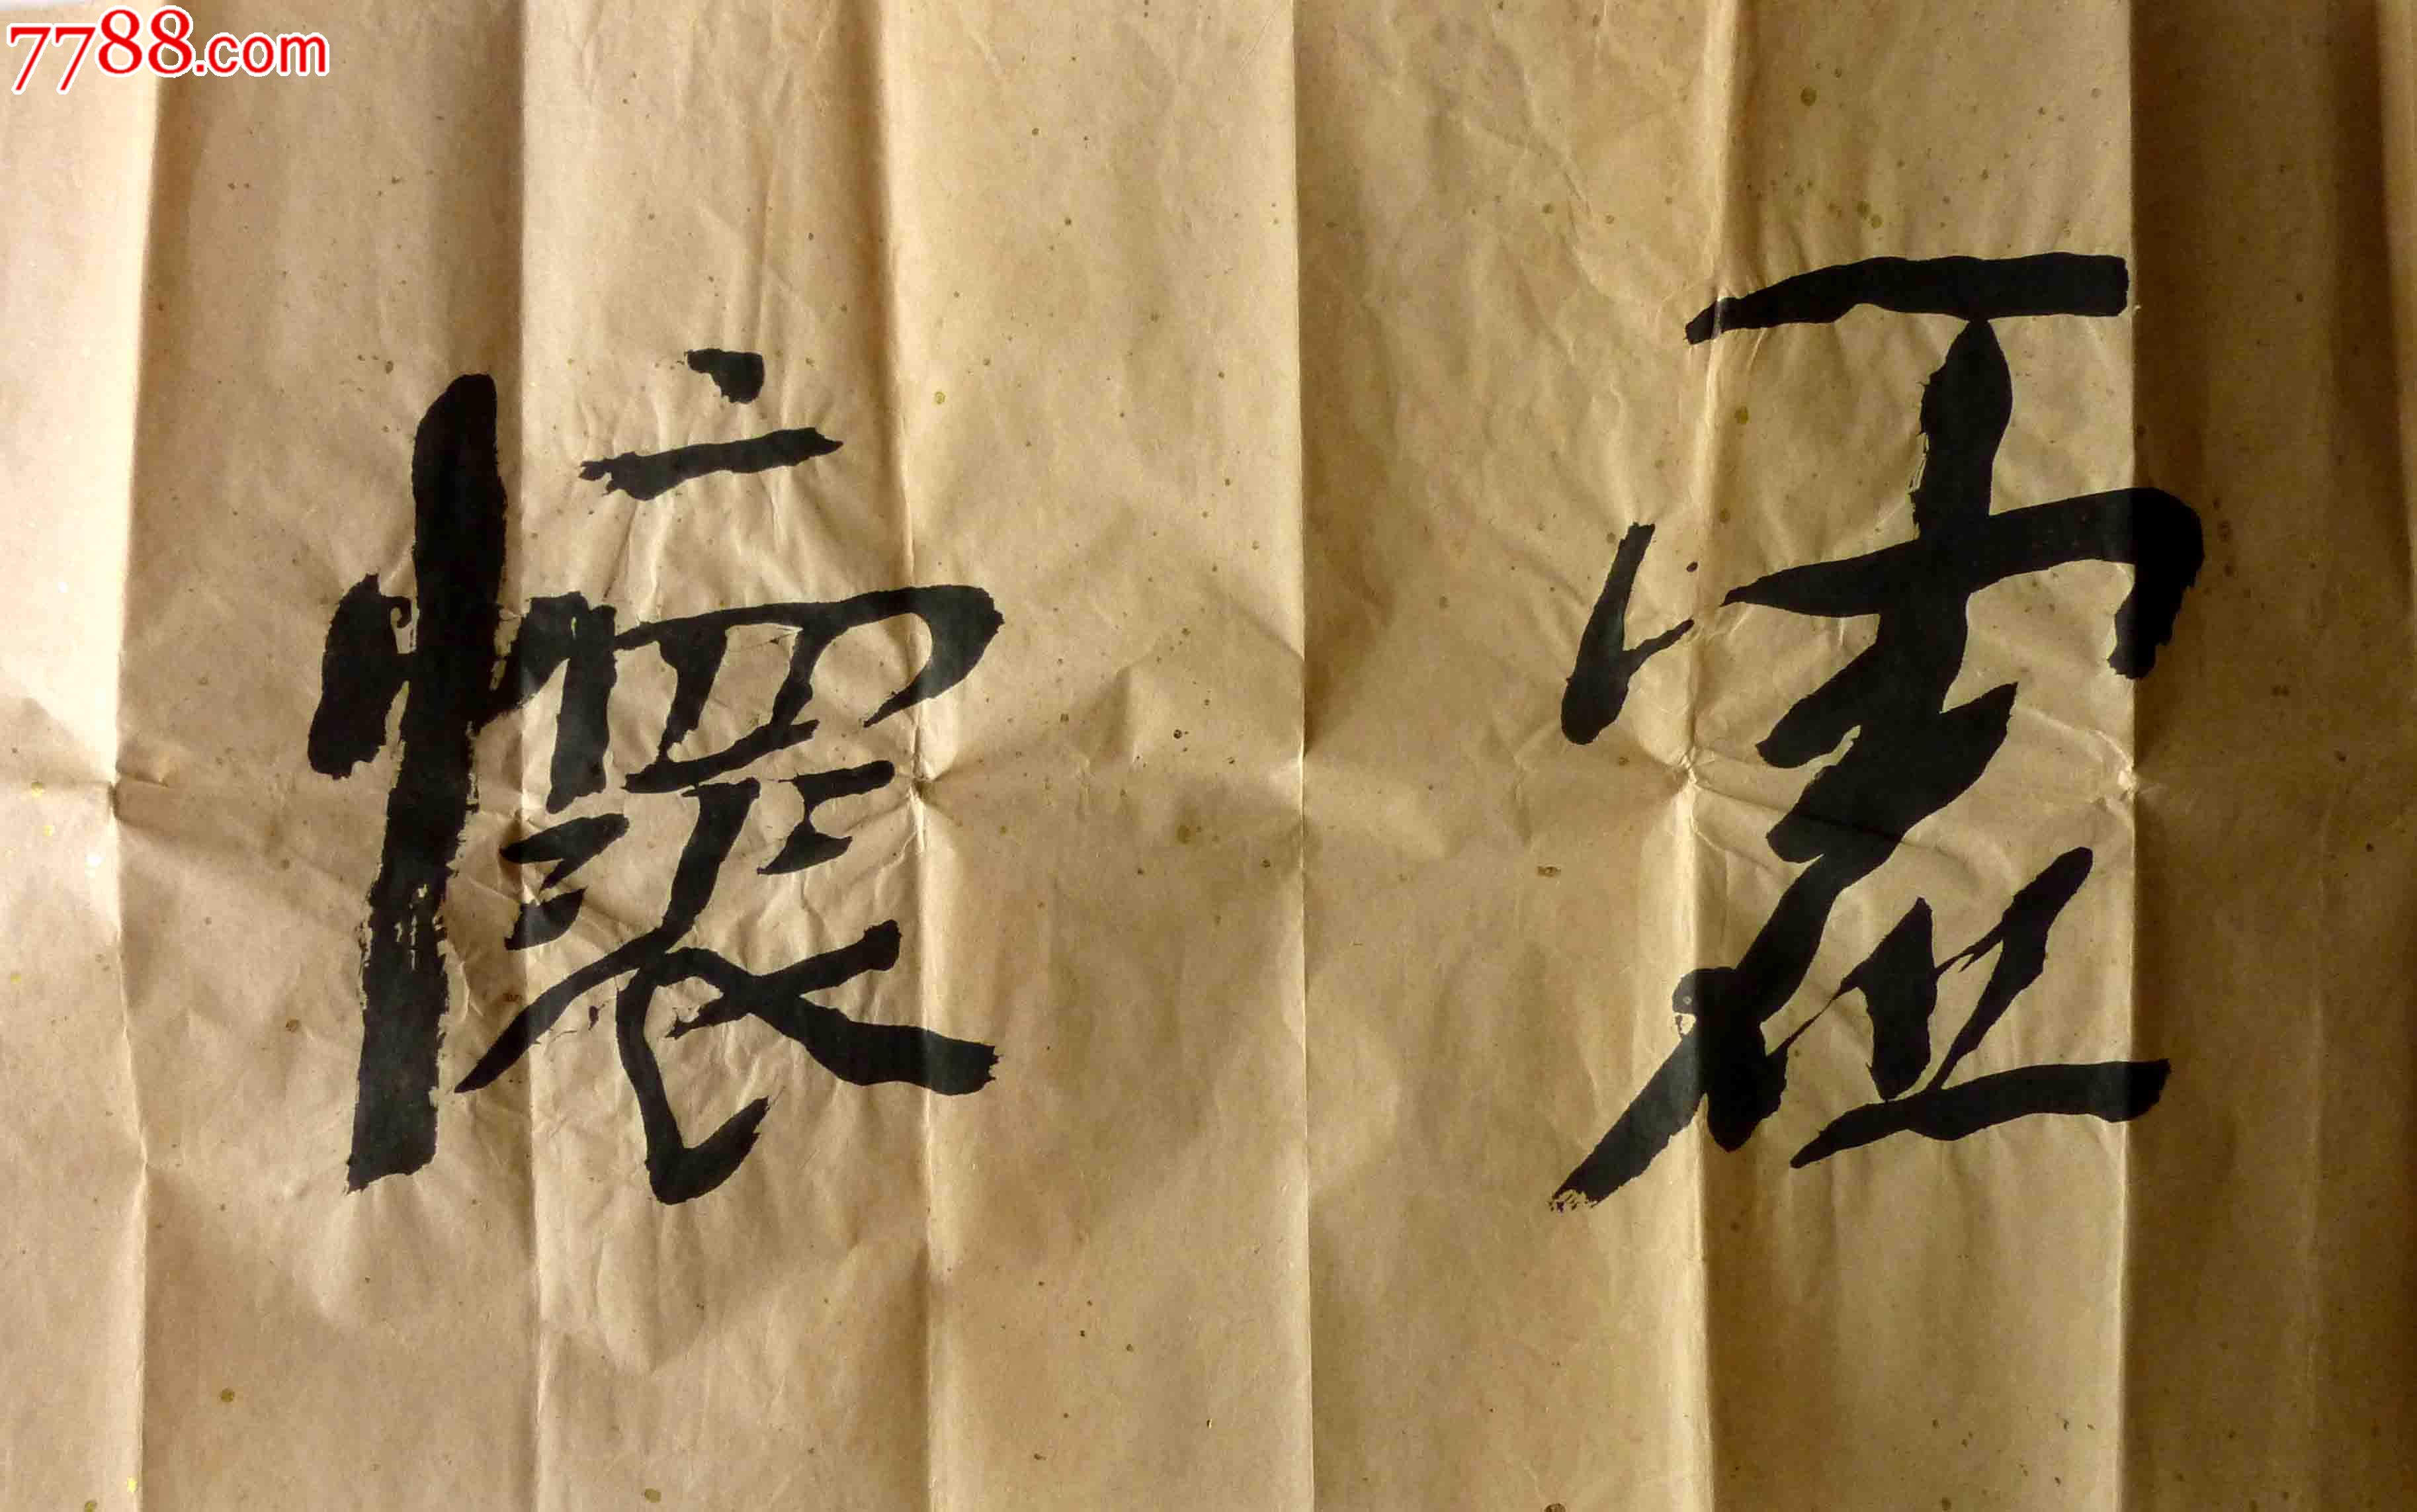 7788.com
虚懷